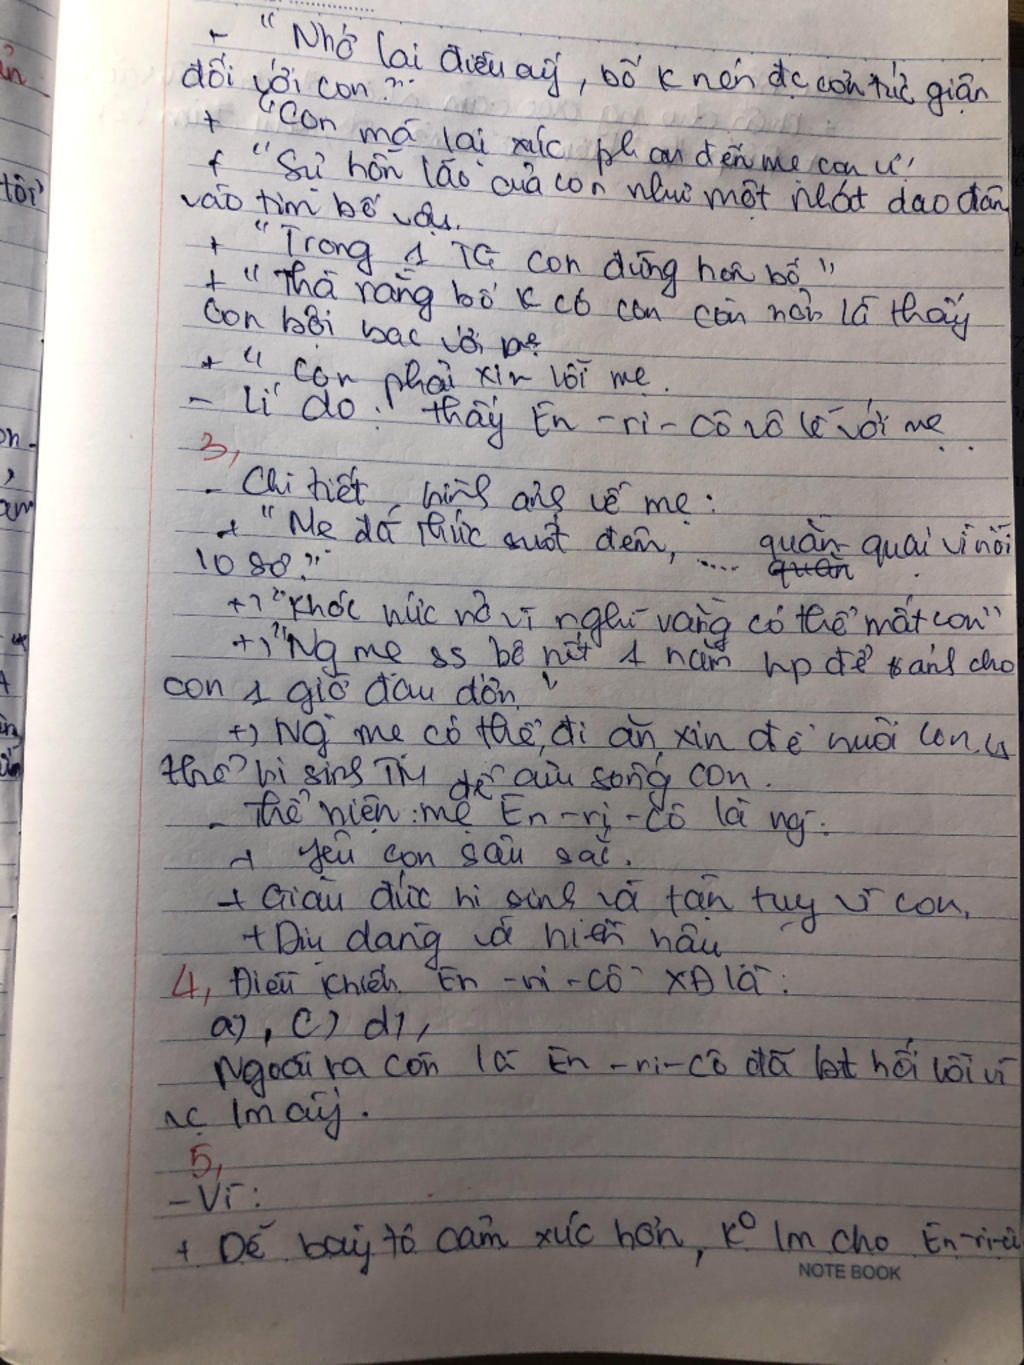 + "Nhớ lại điều ấy, bố k nén đc cơn tức giận
đối với con."
+ "Con mà lại xúc phạm đến mẹ con ư!
+ "Sự hỗn láo của con như một nhát dao đâm
vào tim bố vậy.
+ "Trong 1 TG con đừng hôn bố"
+ "Thà rằng bố k có con còn hơn là thấy
con bội bạc với mẹ
+ " Con phải xin lỗi mẹ.
- Lí do: thấy En-ri-cô vô lễ với mẹ
3,
- Chi tiết, hình ảnh về mẹ:
+ "Mẹ đã thức suốt đêm, .... quằn quại vì nỗi
lo sợ."
+) "Khóc nức nở vì nghĩ rằng có thể mất con"
+) "Ng mẹ ss bỏ hết 1 năm hp để tránh cho
con 1 giờ đau đớn"
+) Ng mẹ có thể đi ăn xin để nuôi con, có
thể hi sinh TM để cứu sống con.
- Thể hiện: mẹ En-ri-cô là ng:
+ Yêu con sâu sắc.
+ Giàu đức hi sinh và tận tụy vì con.
+ Dịu dàng và hiền hậu
4, Điều khiến En-ri-cô XĐ là:
a), c) d),
Ngoài ra còn là En-ri-cô đã hối lỗi vì
lm ấy.
5,
- Vì:
+ Dễ bày tỏ cảm xúc hơn, k° lm cho En-ri-cô
NOTE BOOK